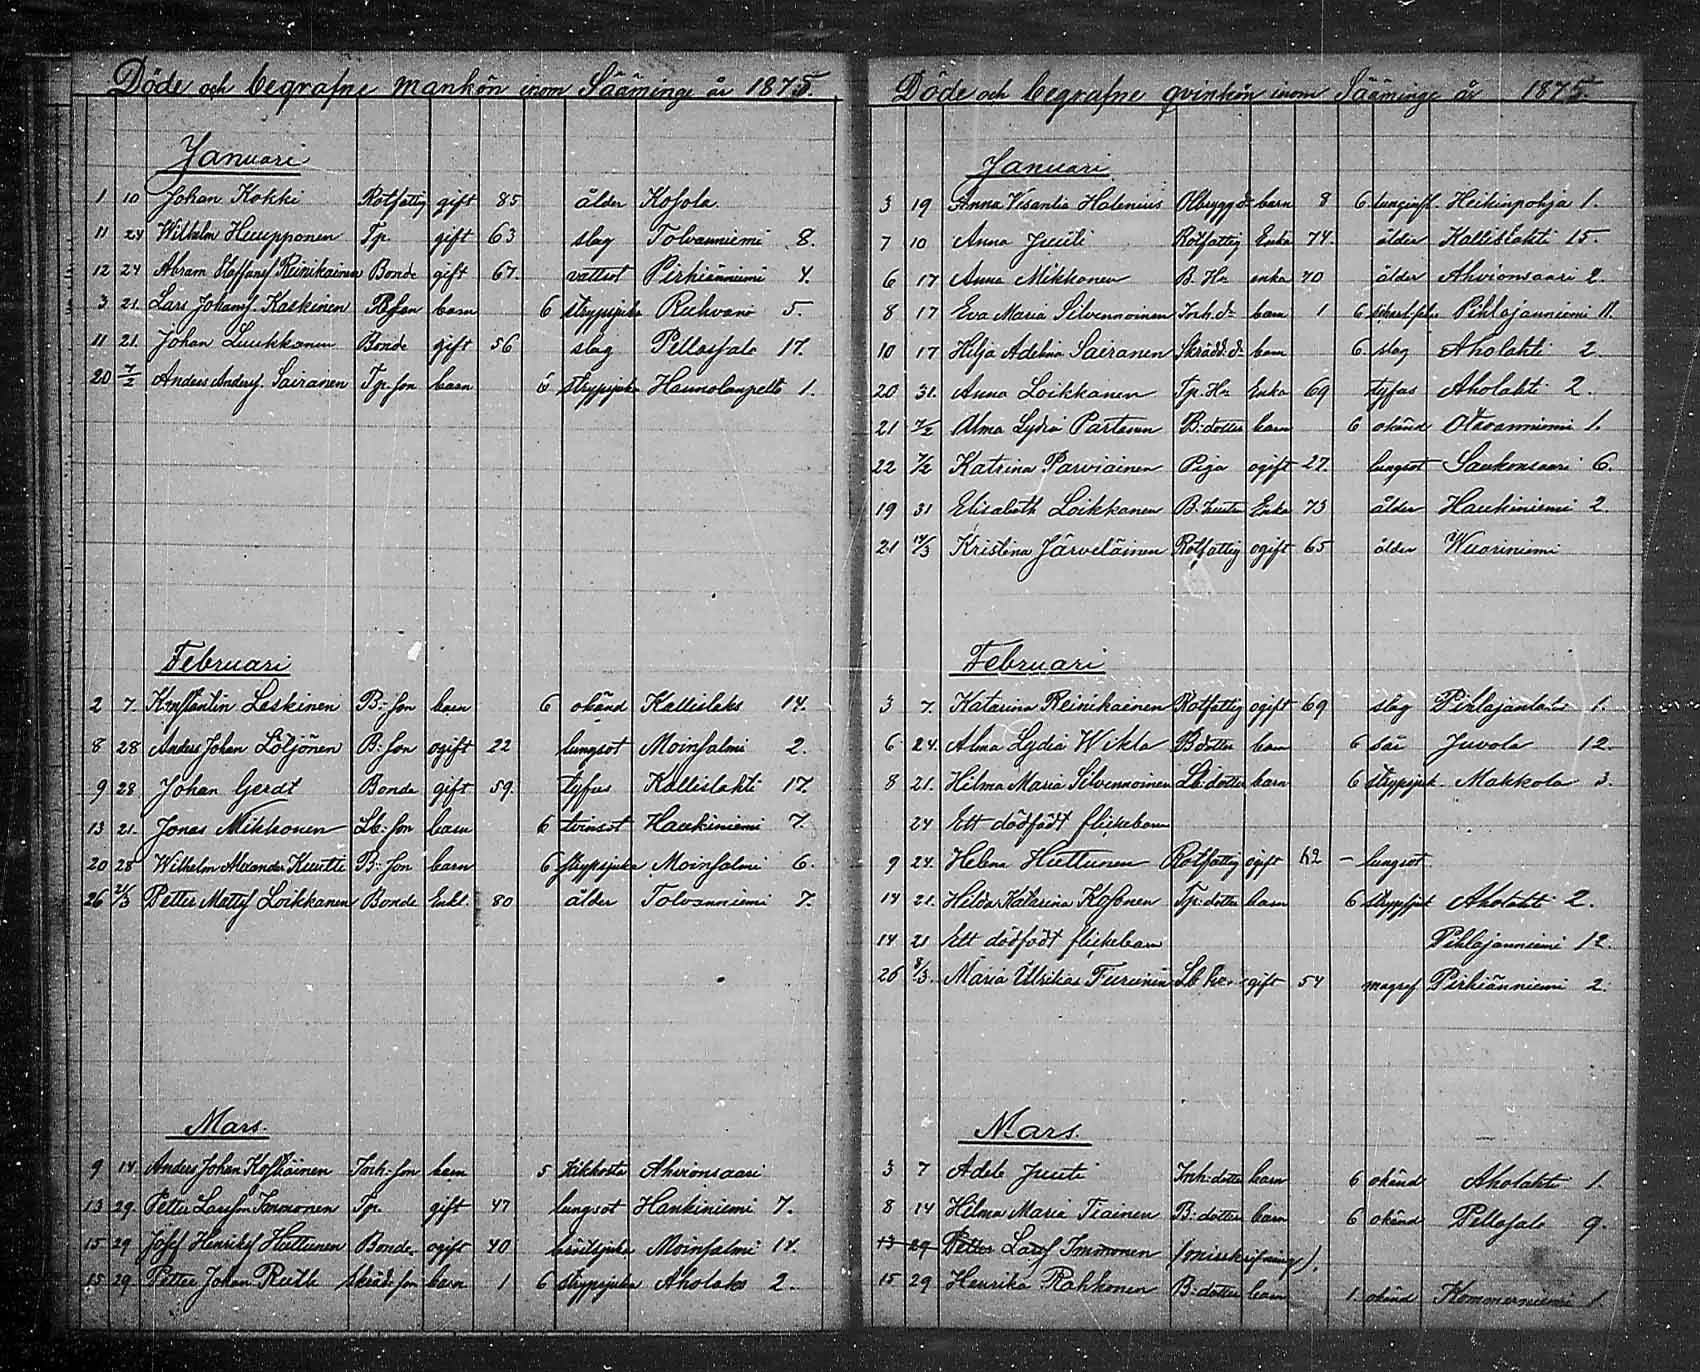 Döde och begrafne mankön inom Sääminge år 1875.
Januari
1 10 Johan Kokki Rotfattig gift 85 ålder Kosola
11 24 Wilhelm Huupponen Tp. gift 63 slag Tolvanniemi 8.
12 24 Abram Staffansf Reinikainen Bonde gift 67. vattsot Pirhiänniemi 4.
3 21. Lars Johansf Kaskinen barn 6 strypsjuka Ruhvana 5.
11 21. Johan Luukkanen Bonde gift 56 slag Pellossalo 17.
20 7/2 Anders Andersf Sairanen Tp. son barn 6 strypsjuka Haunolanpelto 1.
Februari
2 7. Konstantin Laskinen B: son barn 6 okänd Kallislaks 14.
8 28 Anders Johan Löljönen B: son ogift 22 lungsot Moinsalmi 2.
9 28 Johan Gerdt Bonde gift 59. tyfus Kallislahti 17.
13 21. Jonas Mikkonen Lb: son barn 6 tvinsot Haukiniemi 7.
20 28 Wilhelm Alexander Kuutti B: son barn 6 strypsjuka Moinsalmi 6.
26 21/3 Petter Mattsf Loikkanen Bonde Enkl. 80 ålder Tolvanniemi 7.
Mars.
9 14. Anders Johan Koskiainen Inh: son barn 5 kikhosta Ahvionsaari
13 29. Petter Larsson Immonen Tp. gift 47 lungsot Haukiniemi 7.
15 29 Josef Henriksf Huttunen Bonde. ogift 40 bröstsjuka Moinsalmi 14.
15 29 Petter Johan Ruth skrädd. son barn 1 6 strypsjuka Aholaks 2.
Döde och begrafne qvinkön inom Sääminge år 1875.
Januari
3 19 Anna Visantia Halenius Ölbrygg d: barn 8 6 lunginfl. Heikinpohja 1.
7 10 Anna Juuti Rotfattig Enka 74. ålder Kallislahti 15.
6 17 Anna Mikkonen B. H:u enka 70 ålder Ahvionsaari 2.
8 17 Eva Maria Silvennoinen Inh. d: barn 1 6 Pihlajanniemi 11.
10 17 Hilja Adelina Sairanen Skrädd. d: barn 6 slag Aholahti 2.
20 31. Anna Loikkanen Tp. H:u Enka 69 tyfus Aholahti 2.
21 7/2 Alma Lydia Partanen B: dotter barn 6 okänd Otavanniemi 1.
22 7/2 Katrina Parviainen Piga ogift 27. lungsot Saukonsaari 6.
19 31 Elisabeth Loikkanen B: hustru Enka 73 ålder Haukiniemi 2
21 14/3 Kristina Järveläinen Rotfattig ogift 65 ålder Wuoriniemi
Februari
3 7. Katarina Reinikainen Rotfattig ogift 69 slag Pihlajanlaks 1.
6 24. Alma Lydia Wikla B dotter barn 6 sår Juvola 12.
8 21. Hilma Maria Silvennoinen Lb: dotter barn 6 strypsjuk. Makkola 3.
24 Ett dödfödt flickebarn
9 24. Helena Huttunen Rotfattig ogift 62 - lungsot
14 21. Hilda Katarina Kosonen Tp: dotter barn 6 strypsjuk Aholahti 2.
14 21 Ett dödfödt flickebarn Pihlajanniemi 12.
26 8/3. Maria Ullrika Turunen Lb. hu. gift 54 magref Pirhiänniemi 2.
Mars.
3 7 Adele Juuti Inh: dotter barn 6 okänd Aholahti 1.
8 14 Hilma Maria Tiainen B: dotter barn 6 okänd Pellosalo 9.
13 29 Petter Larsf Immonen (misskrifning).
15 29 Henrika Rahkonen B: dotter barn 1 okänd Kommerniemi 1.